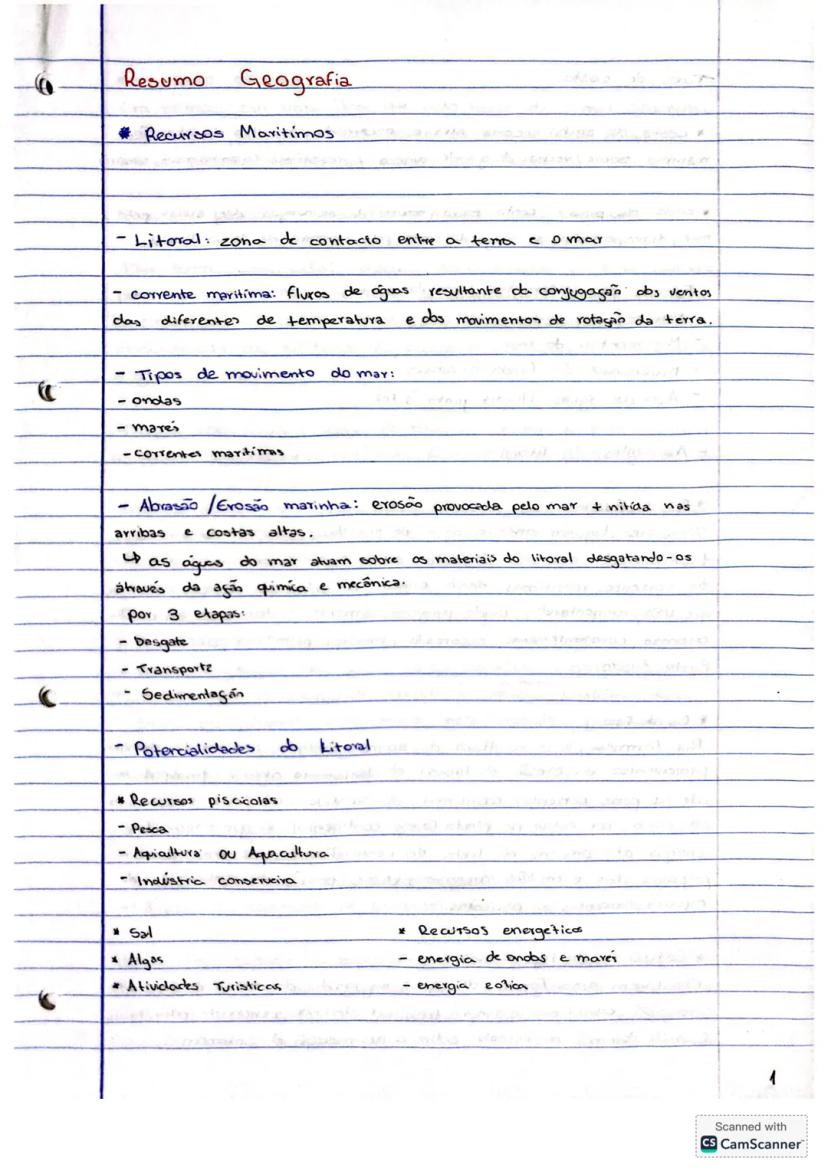 Resumo Geografia
* Recursos Maritímos
- Litoral: zona de contacto entre a terra e o mar
- corrente maritíma: fluxos de águas resultante da conjugação dos ventos
das diferentes de temperatura e dos movimentos de rotação da terra.
- Tipos de movimento do mar:
- ondas
- marés
- correntes marítimas
- Abrasão / Erosão marinha: erosão provocada pelo mar + nítida nas
arribas e costas altas.
↳ as águas do mar atuam sobre os materiais do litoral desgatando-os
através da ação química e mecânica.
por 3 etapas:
- Desgate
- Transporte
- Sedimentação
- Potencialidades do Litoral
* Recursos piscícolas
- Pesca
- Aquicultura ou Aquacultura
- Indústria conserveira
* Sal
* Algas
* Atividades Turísticas
* Recursos energéticos
- energia de ondas e marés
- energia eólica
1
Scanned with
CS CamScanner